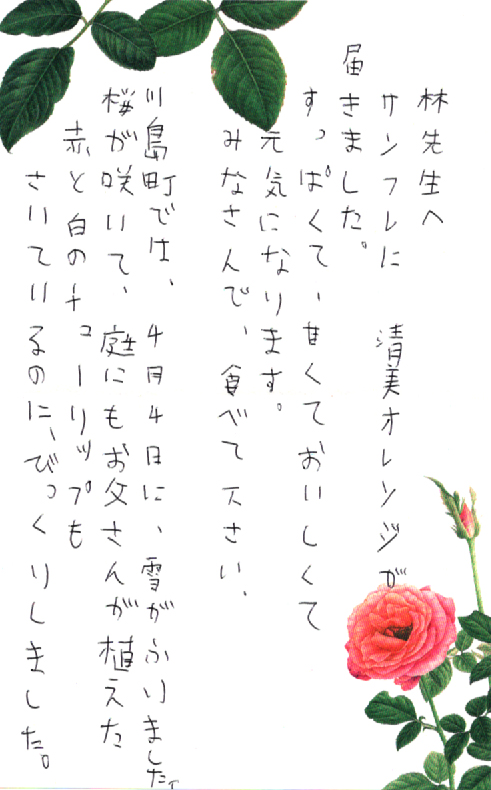 林先生へ
サンフレに 清美オレンジが
届きました。
すっぱくて、甘くておいしくて
元気になります。
みなさんで、食べて下さい、
川島町では、4月4日に、雪がふりました、
桜が咲いて、庭にもお父さんが植えた
赤と白のチューリップも
さいているのに、びっくりしました。